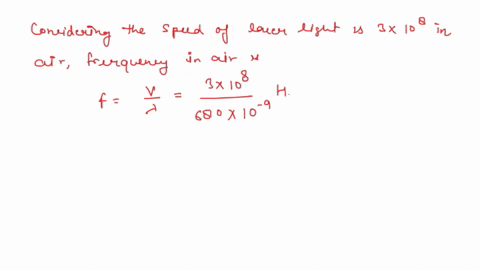 Considering the speed of laser light is 3×10⁸ in
air, frequency in air is
f = v/λ = 3×10⁸ / 680×10⁻⁹ H